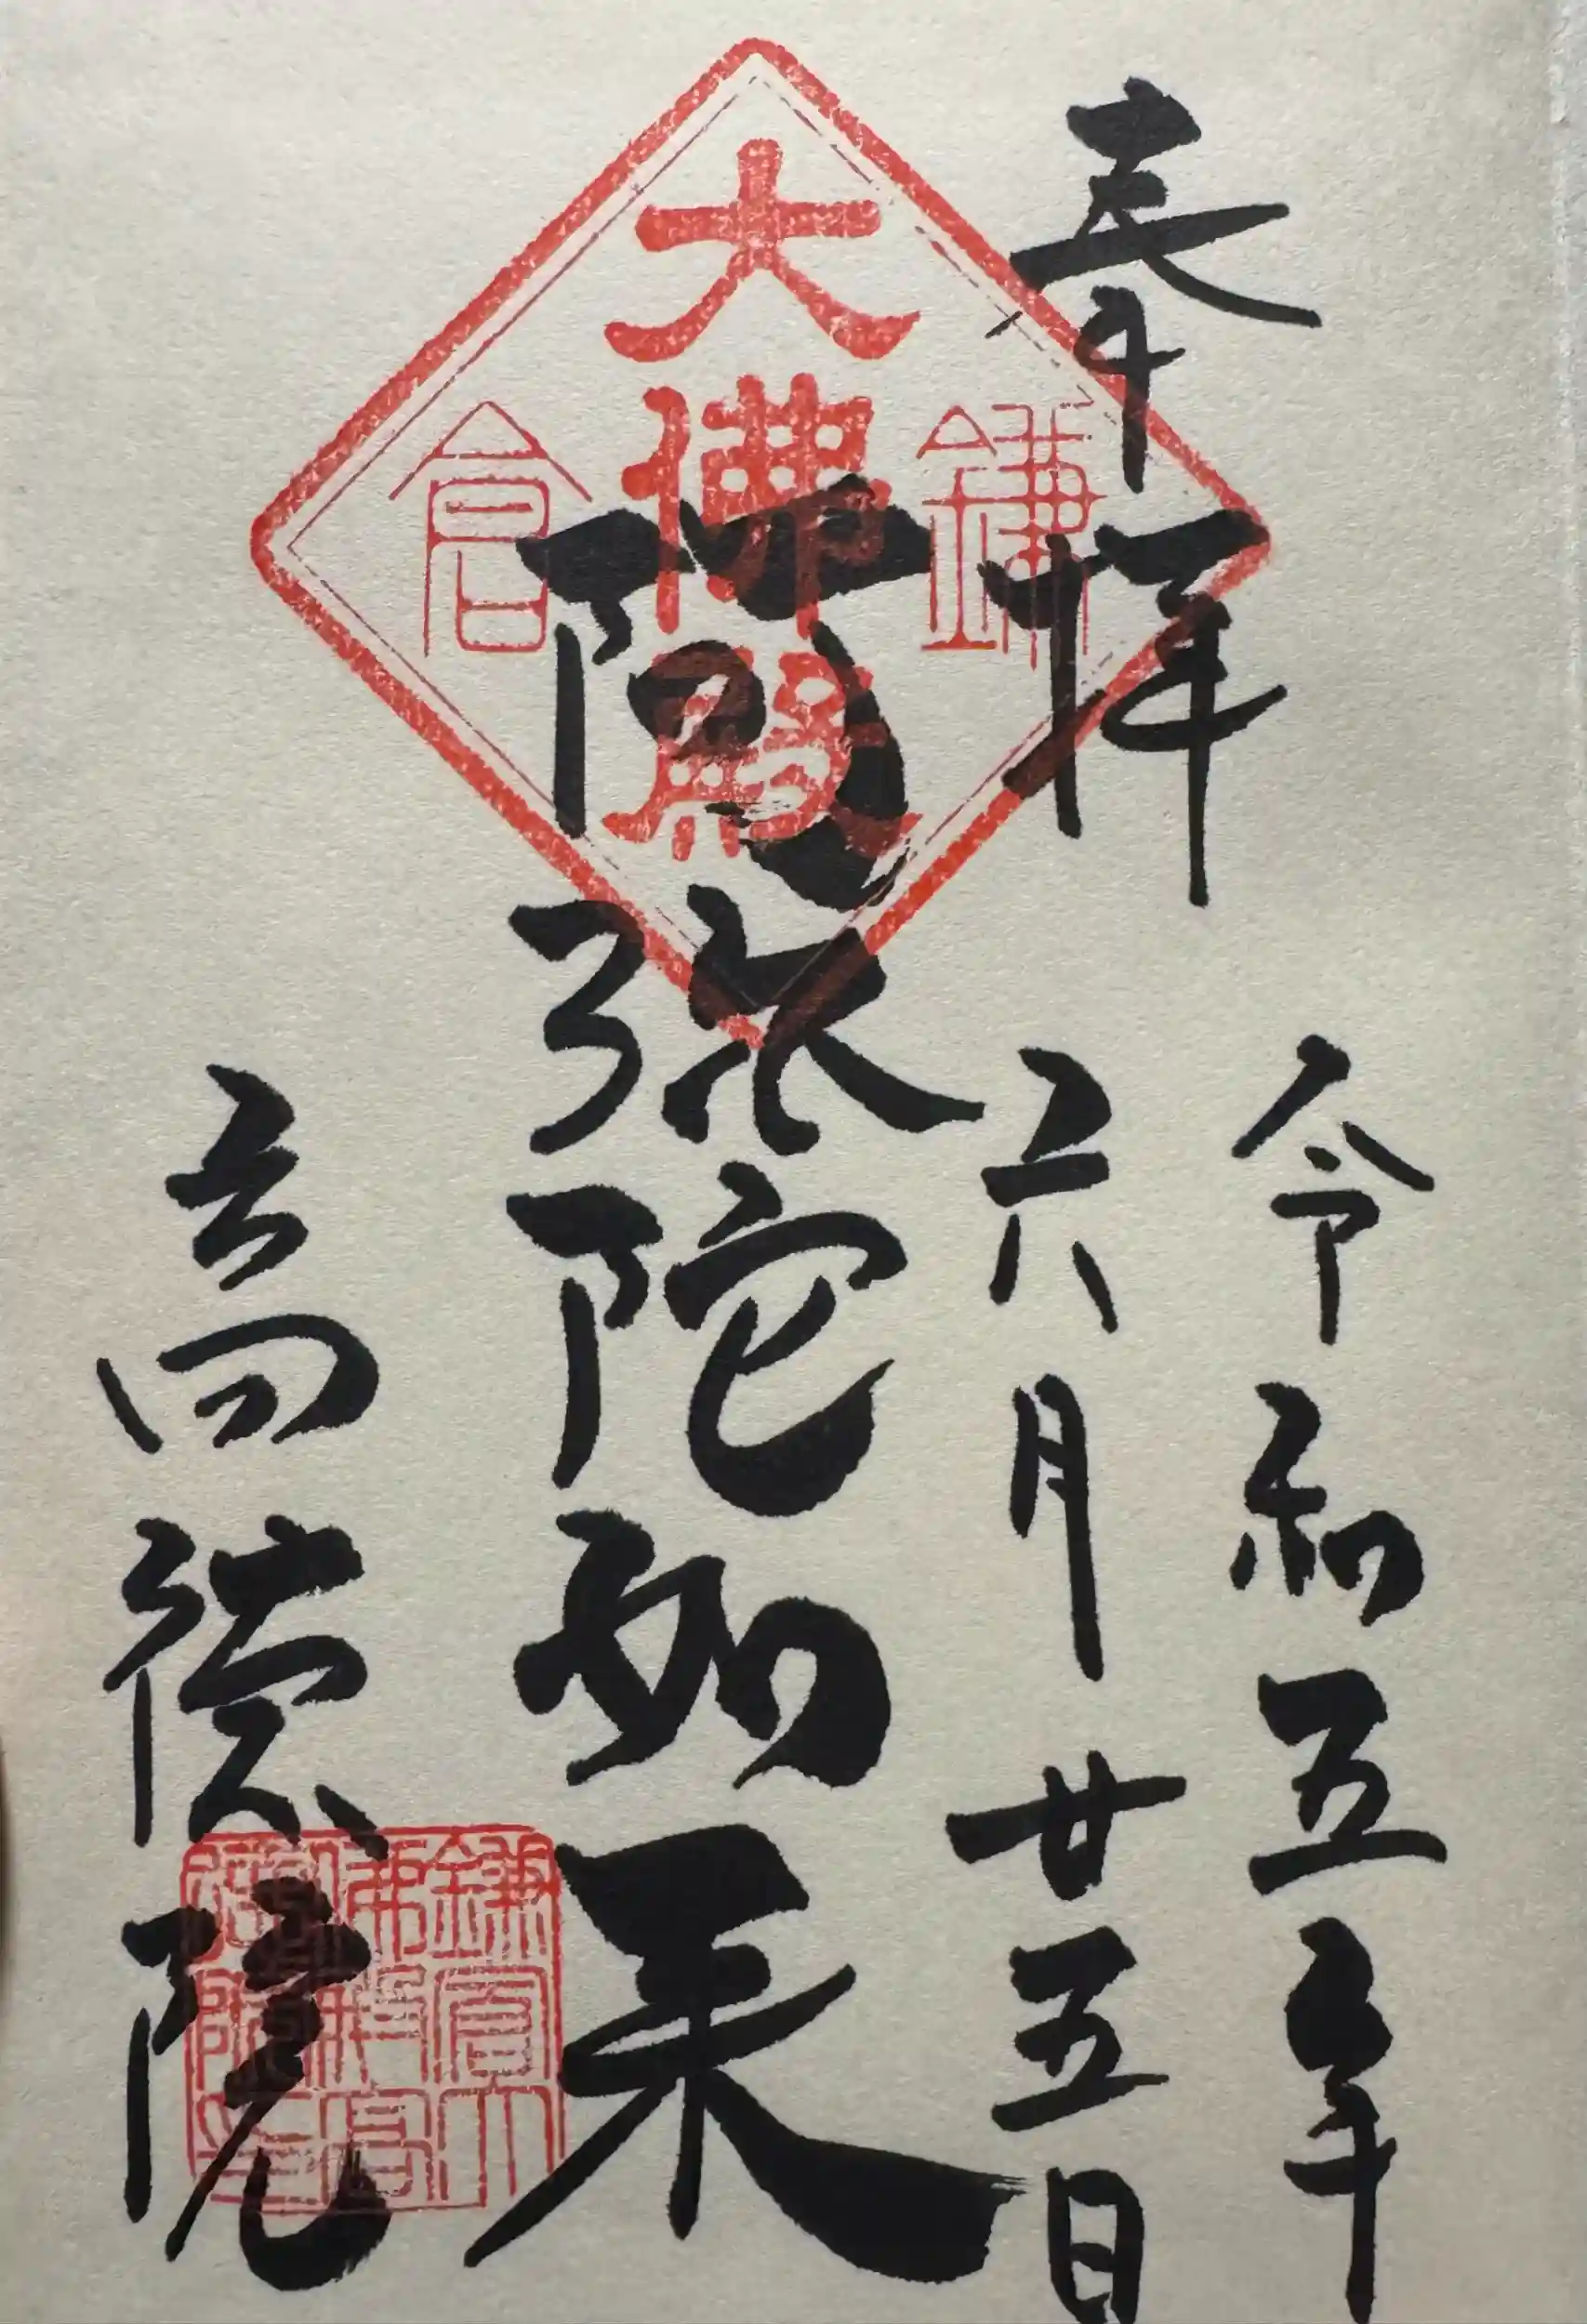 奉拝
令和五年
六月廿五日
鎌倉
大佛殿
阿弥陀如来
高徳院
鎌倉大佛殿高徳院